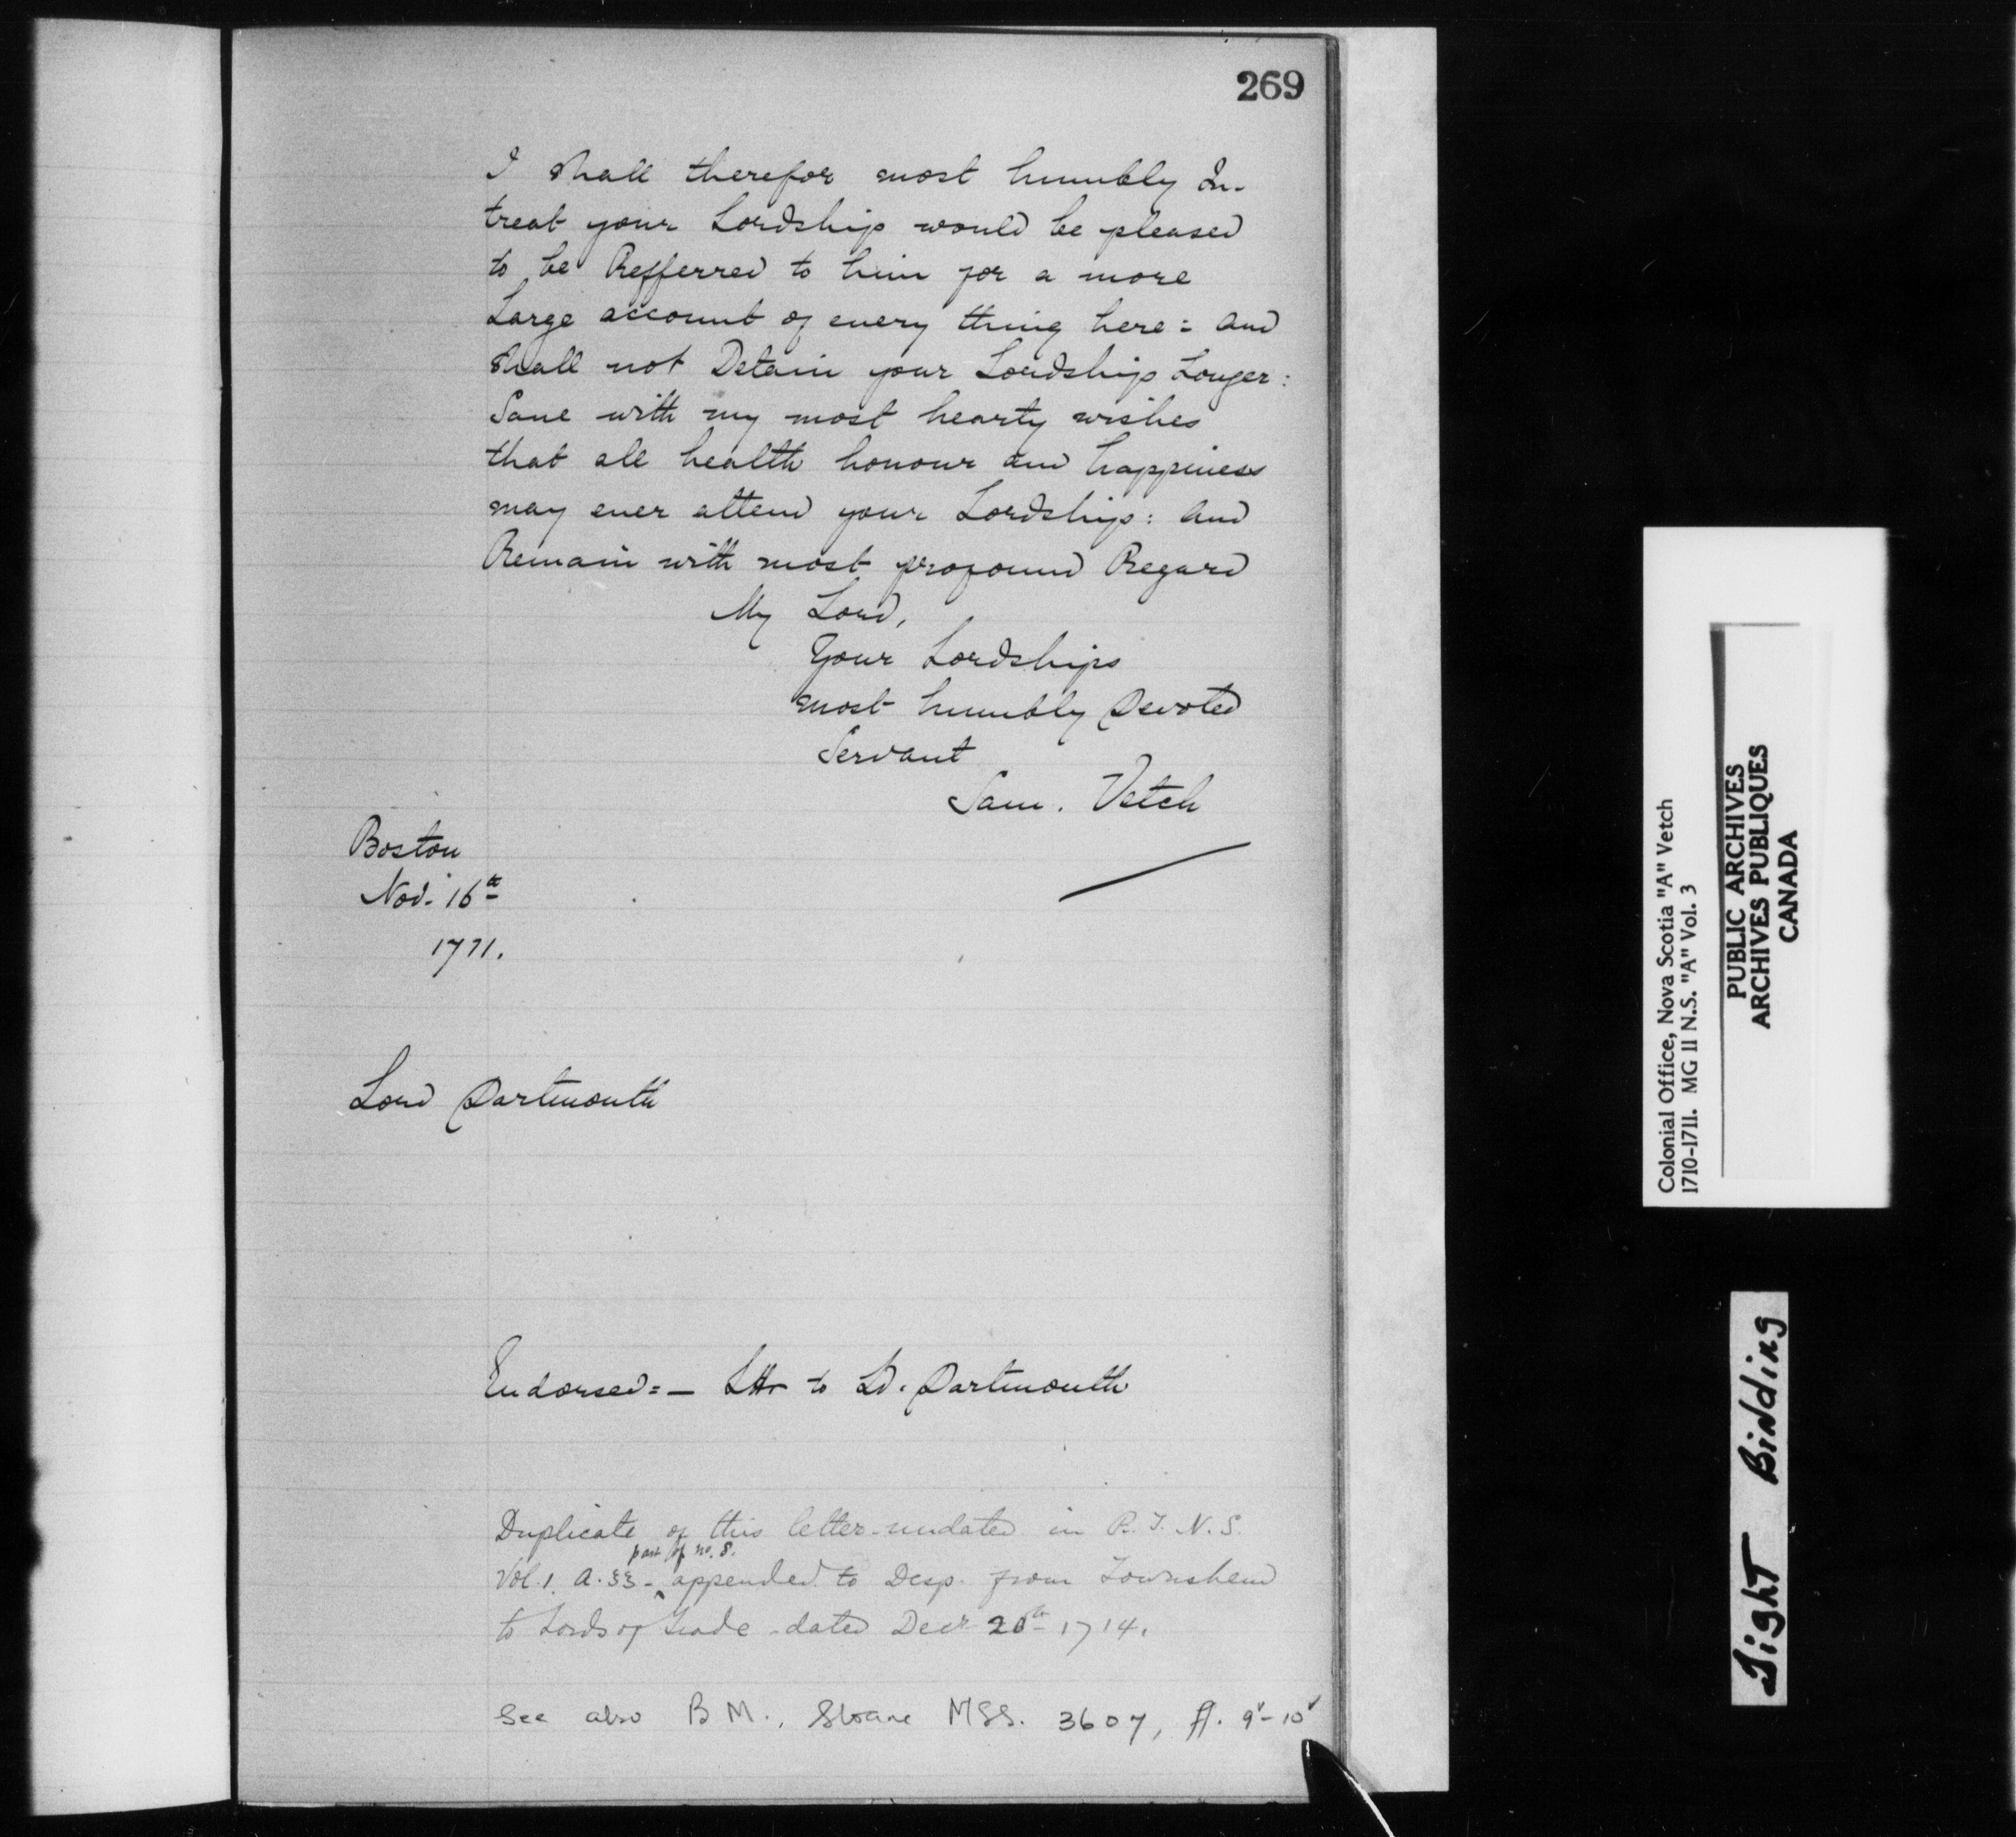 269
I shall therefor most humbly In-
treat your Lordship would be pleased
to be Refferred to him for a more
Large account of every thing here: and
shall not Detain your Lordship Longer:
Save with my most hearty wishes
that all health honour and happiness
may ever attend your Lordship: and
Remain with most profound Regard
My Lord,
Your Lordships
most humbly Devoted
Servant
Sam. Vetch
Boston
Nov. 16th
1711.
Lord Dartmouth
Endorsed:- Lttr to Ld. Dartmouth
Duplicate of this letter-undated in B.T. N.S.
part of no. 8.
Vol. 1. A. 33 - ^ appended to Desp. from Townshend
to Lords of Trade - dated Decr 20th 1714.
See also B M., Sloane MSS. 3607, ff. 9v-10v
Colonial Office, Nova Scotia "A" Vetch
1710-1711. MG 11 N.S. "A" Vol. 3
PUBLIC ARCHIVES
ARCHIVES PUBLIQUES
CANADA
Tight Binding